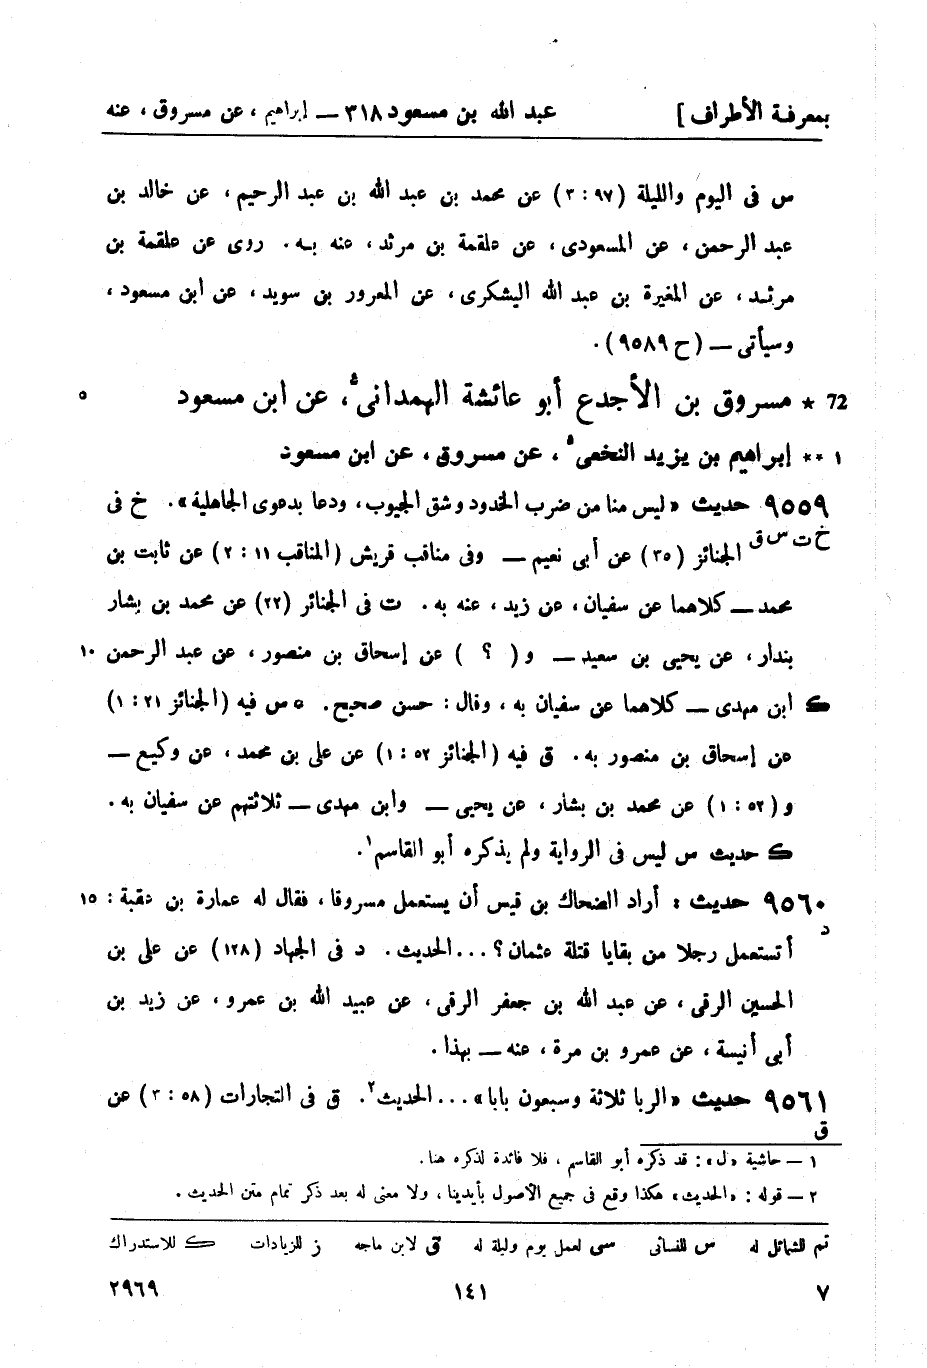 بمعرفة الأطراف] عبد الله بن مسعود ٣١٨ — إبراهيم ، عن مسروق ، عنه
س فى اليوم والليلة (٩٧ : ٣) عن محمد بن عبد الله بن عبد الرحيم ، عن خالد بن
عبد الرحمن ، عن المسعودى ، عن علقمة بن مرثد ، عنه بـه . روى عن علقمة بن
مرثـد ، عن المغيرة بن عبد الله اليشكرى ، عن المعرور بن سويد ، عن ابن مسعود ،
وسيأتى — (ح ٩٥٨٩) .
72 * مسروق بن الأجدع أبو عائشة الهمدانىّ ، عن ابن مسعود ٥
١ ** إبراهيم بن يزيد النخعىّ ، عن مسروق ، عن ابن مسعود
٩٥٥٩ حديث «ليس منا من ضرب الخدود وشق الجيوب ، ودعا بدعوى الجاهلية» . خ فى
خ ت س ق الجنائز (٣٥) عن أبى نعيم — وفى مناقب قريش (المناقب ١١ : ٢) عن ثابت بن
محمد — كلاهما عن سفيان ، عن زيد ، عنه به . ت فى الجنائز (٢٢) عن محمد بن بشار
بندار ، عن يحيى بن سعيد — و ( ؟ ) عن إسحاق بن منصور ، عن عبد الرحمن ١٠
ك ابن مهدى — كلاهما عن سفيان به ، وقال : حسن صحيح . ٥ س فيه (الجنائز ٢١ : ١)
عن إسحاق بن منصور به . ق فيه (الجنائز ٥٢ : ١) عن على بن محمد ، عن وكيع —
و (٥٢ : ١) عن محمد بن بشار ، عن يحيى — وابن مهدى — ثلاثتهم عن سفيان به .
ك حديث س ليس فى الرواية ولم يذكره أبو القاسم١ .
٩٥٦٠ حديث : أراد الضحاك بن قيس أن يستعمل مسروقا ، فقال له عمارة بن عقبة : ١٥
د أتستعمل رجلا من بقايا قتلة عثمان ؟ ... الحديث . د فى الجهاد (١٢٨) عن على بن
الحسين الرقى ، عن عبد الله بن جعفر الرقى ، عن عبيد الله بن عمرو ، عن زيد بن
أبى أنيسة ، عن عمرو بن مرة ، عنه — بهذا .
٩٥٦١ حديث «الربا ثلاثة وسبعون بابا» ... الحديث٢ . ق فى التجارات (٥٨ : ٣) عن
ق
١ — حاشية «ل» : قد ذكره أبو القاسم ، فلا فائدة لذكره هنا .
٢ — قوله : «الحديث» هكذا وقع فى جميع الأصول بأيدينا ، ولا معنى له بعد ذكر تمام متن الحديث .
تم للشمائل له س للنسائى سى لعمل يوم وليلة له ق لابن ماجه ز للزيادات ك للاستدراك
٧ ١٤١ ٢٩٦٩